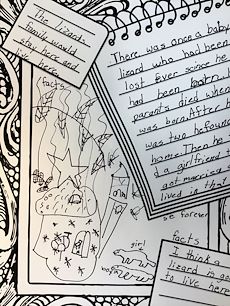 The lizards
family would
stay here and
live here.
facts
There was once a baby
lizard who had been
lost ever since he
had been born.
parents died when
was born. After h
was two he found
home. Then he
d a girlfriend
got married
lived in that
se forever
girl
facts
I think a
lizard is go
to live here